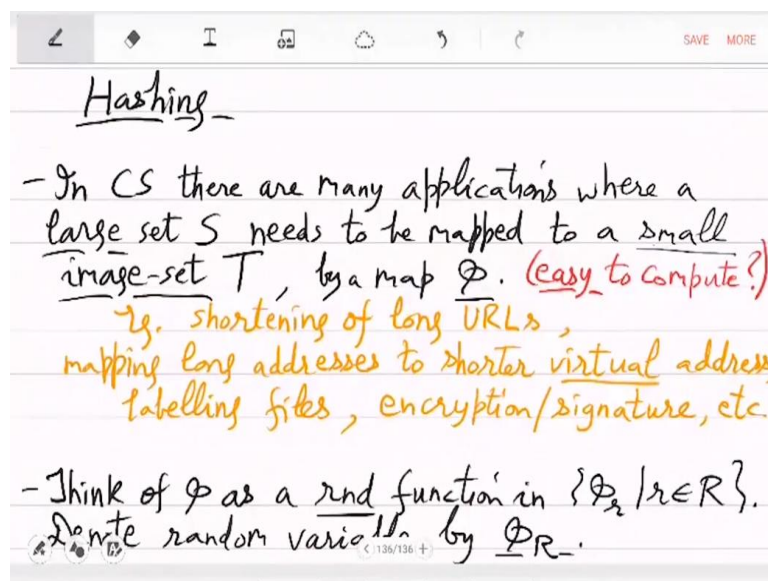 SAVE MORE
Hashing
- In CS there are many applications where a
large set S needs to be mapped to a small
image-set T, by a map φ. (easy to compute?)
Eg. shortening of long URLs,
mapping long addresses to shorter virtual address
labelling files, encryption/signature, etc.
- Think of φ as a rnd function in {φᵣ | r∈R}.
Denote random variable by φ_R.
136/136